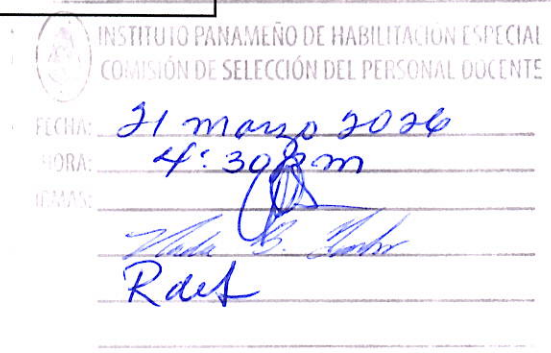 INSTITUTO PANAMEÑO DE HABILITACIÓN ESPECIAL
COMISIÓN DE SELECCIÓN DEL PERSONAL DOCENTE
FECHA: 21 marzo 2026
HORA: 4:30 pm
FIRMAS: